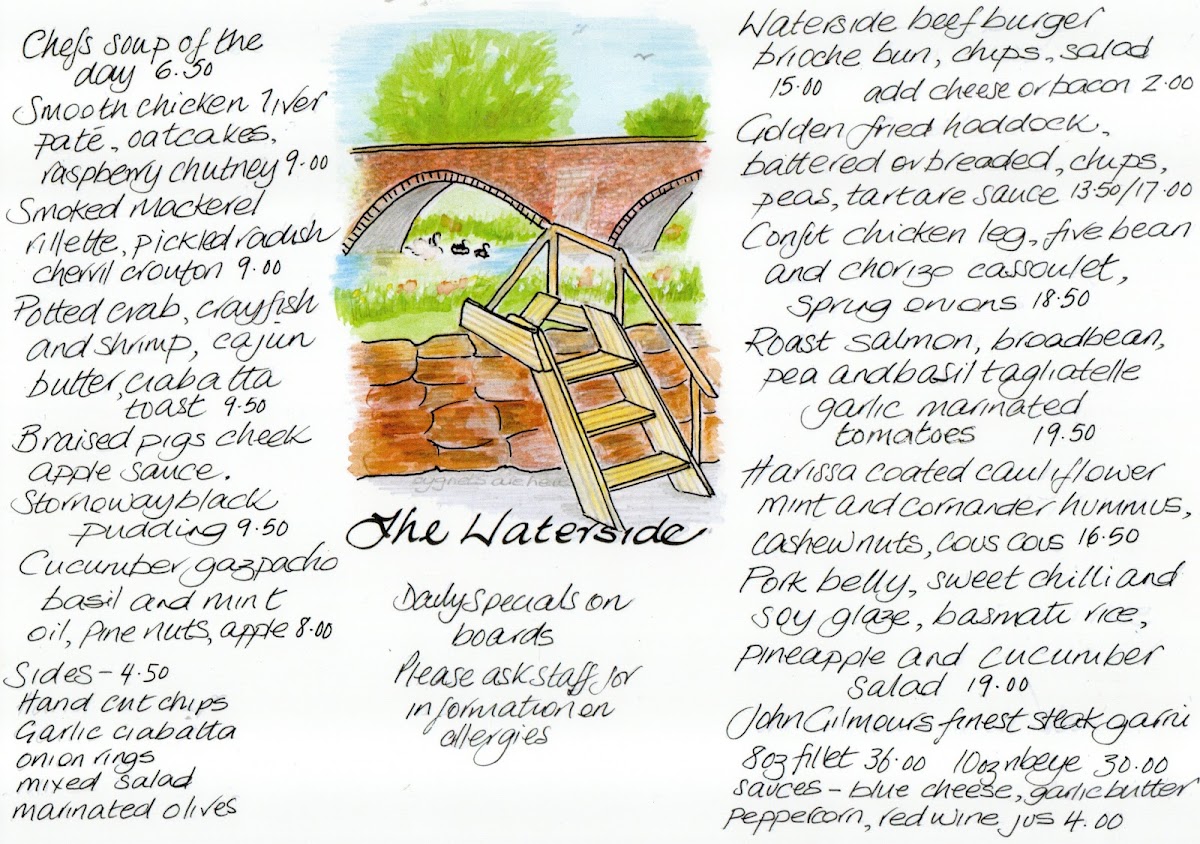 Chefs soup of the
day 6.50
Smooth chicken liver
paté, oatcakes,
raspberry chutney 9.00
Smoked Mackerel
rillette, pickled radish
chervil crouton 9.00
Potted crab, crayfish
and shrimp, cajun
butter, ciabatta
toast 9.50
Braised pigs cheek
apple sauce.
Stornoway black
pudding 9.50
Cucumber, gazpacho
basil and mint
oil, pine nuts, apple 8.00
Sides - 4.50
Hand cut chips
Garlic ciabatta
onion rings
mixed salad
marinated olives
The Waterside
Daily specials on
boards
Please ask staff for
information on
allergies
Waterside beef burger
brioche bun, chips, salad
15.00 add cheese or bacon 2.00
Golden fried haddock,
battered or breaded, chips,
peas, tartare sauce 13.50/17.00
Confit chicken leg, five bean
and chorizo cassoulet,
spring onions 18.50
Roast salmon, broadbean,
pea and basil tagliatelle
garlic marinated
tomatoes 19.50
Harissa coated cauliflower
mint and coriander hummus,
cashew nuts, cous cous 16.50
Pork belly, sweet chilli and
soy glaze, basmati rice,
pineapple and cucumber
salad 19.00
John Gilmour's finest steak garni
8oz fillet 36.00 10oz ribeye 30.00
sauces - blue cheese, garlic butter
peppercorn, red wine jus 4.00